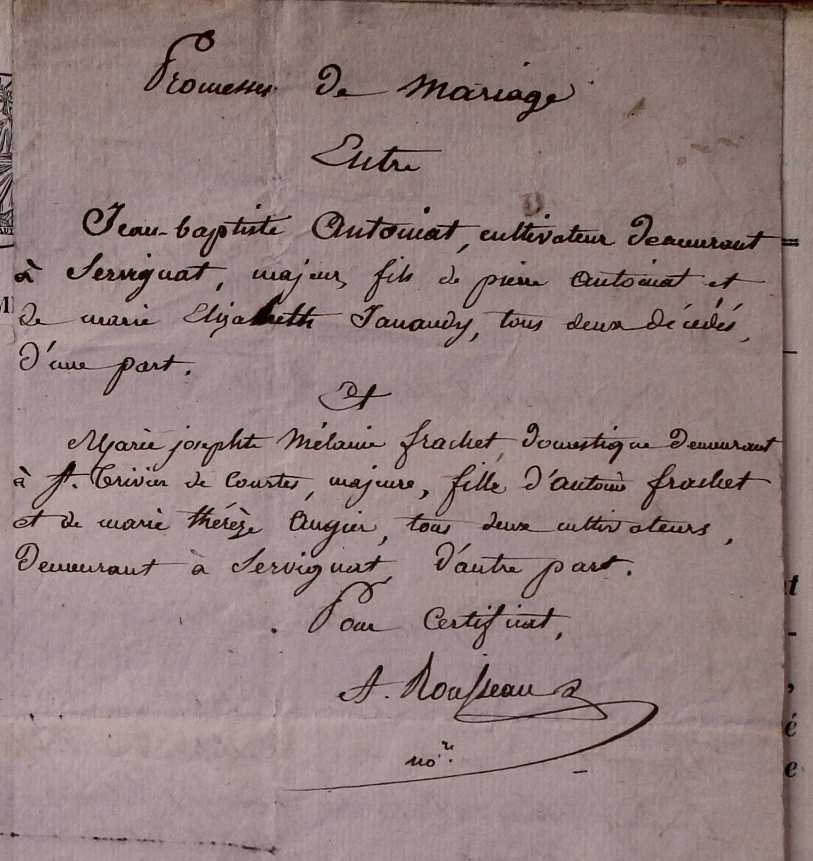 Promesses de mariage
Entre
Jean-baptiste Antoinat, cultivateur demeurant
à Servignat, majeur, fils de pierre Antoinat et
de marie Elizabeth Janaudy, tous deux décédés,
d'une part.
Et
Marie josephte Mélanie frachet, domestique demeurant
à St. Trivier de Courtes, majeure, fille d'antoine frachet
et de marie thérèze Augier, tous deux cultivateurs,
demeurant à Servignat, d'autre part.
Pour Certificat,
A. Rousseau
no.re